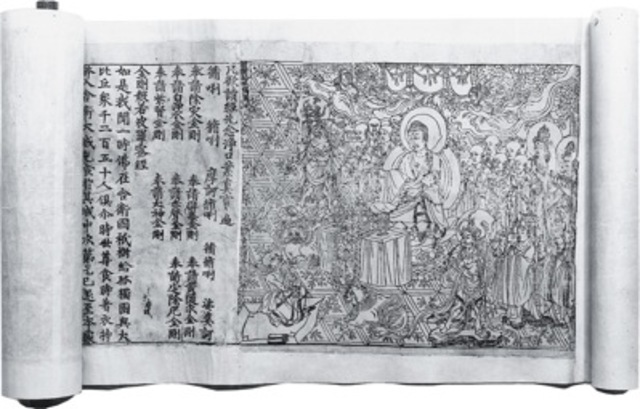 凡欲讀經先念淨口業真言一遍
脩唎 脩唎 摩訶脩唎 脩脩唎 娑婆訶
奉請除災金剛 奉請辟毒金剛 奉請黃隨求金剛
奉請白淨水金剛 奉請赤聲金剛 奉請定除厄金剛
奉請紫賢金剛 奉請大神金剛
金剛般若波羅蜜經
如是我聞一時佛在舍衛國祇樹給孤獨園與大
比丘眾千二百五十人俱尒時世尊食時著衣持
鉢入舍衛大城乞食於其城中次第乞已還至本處